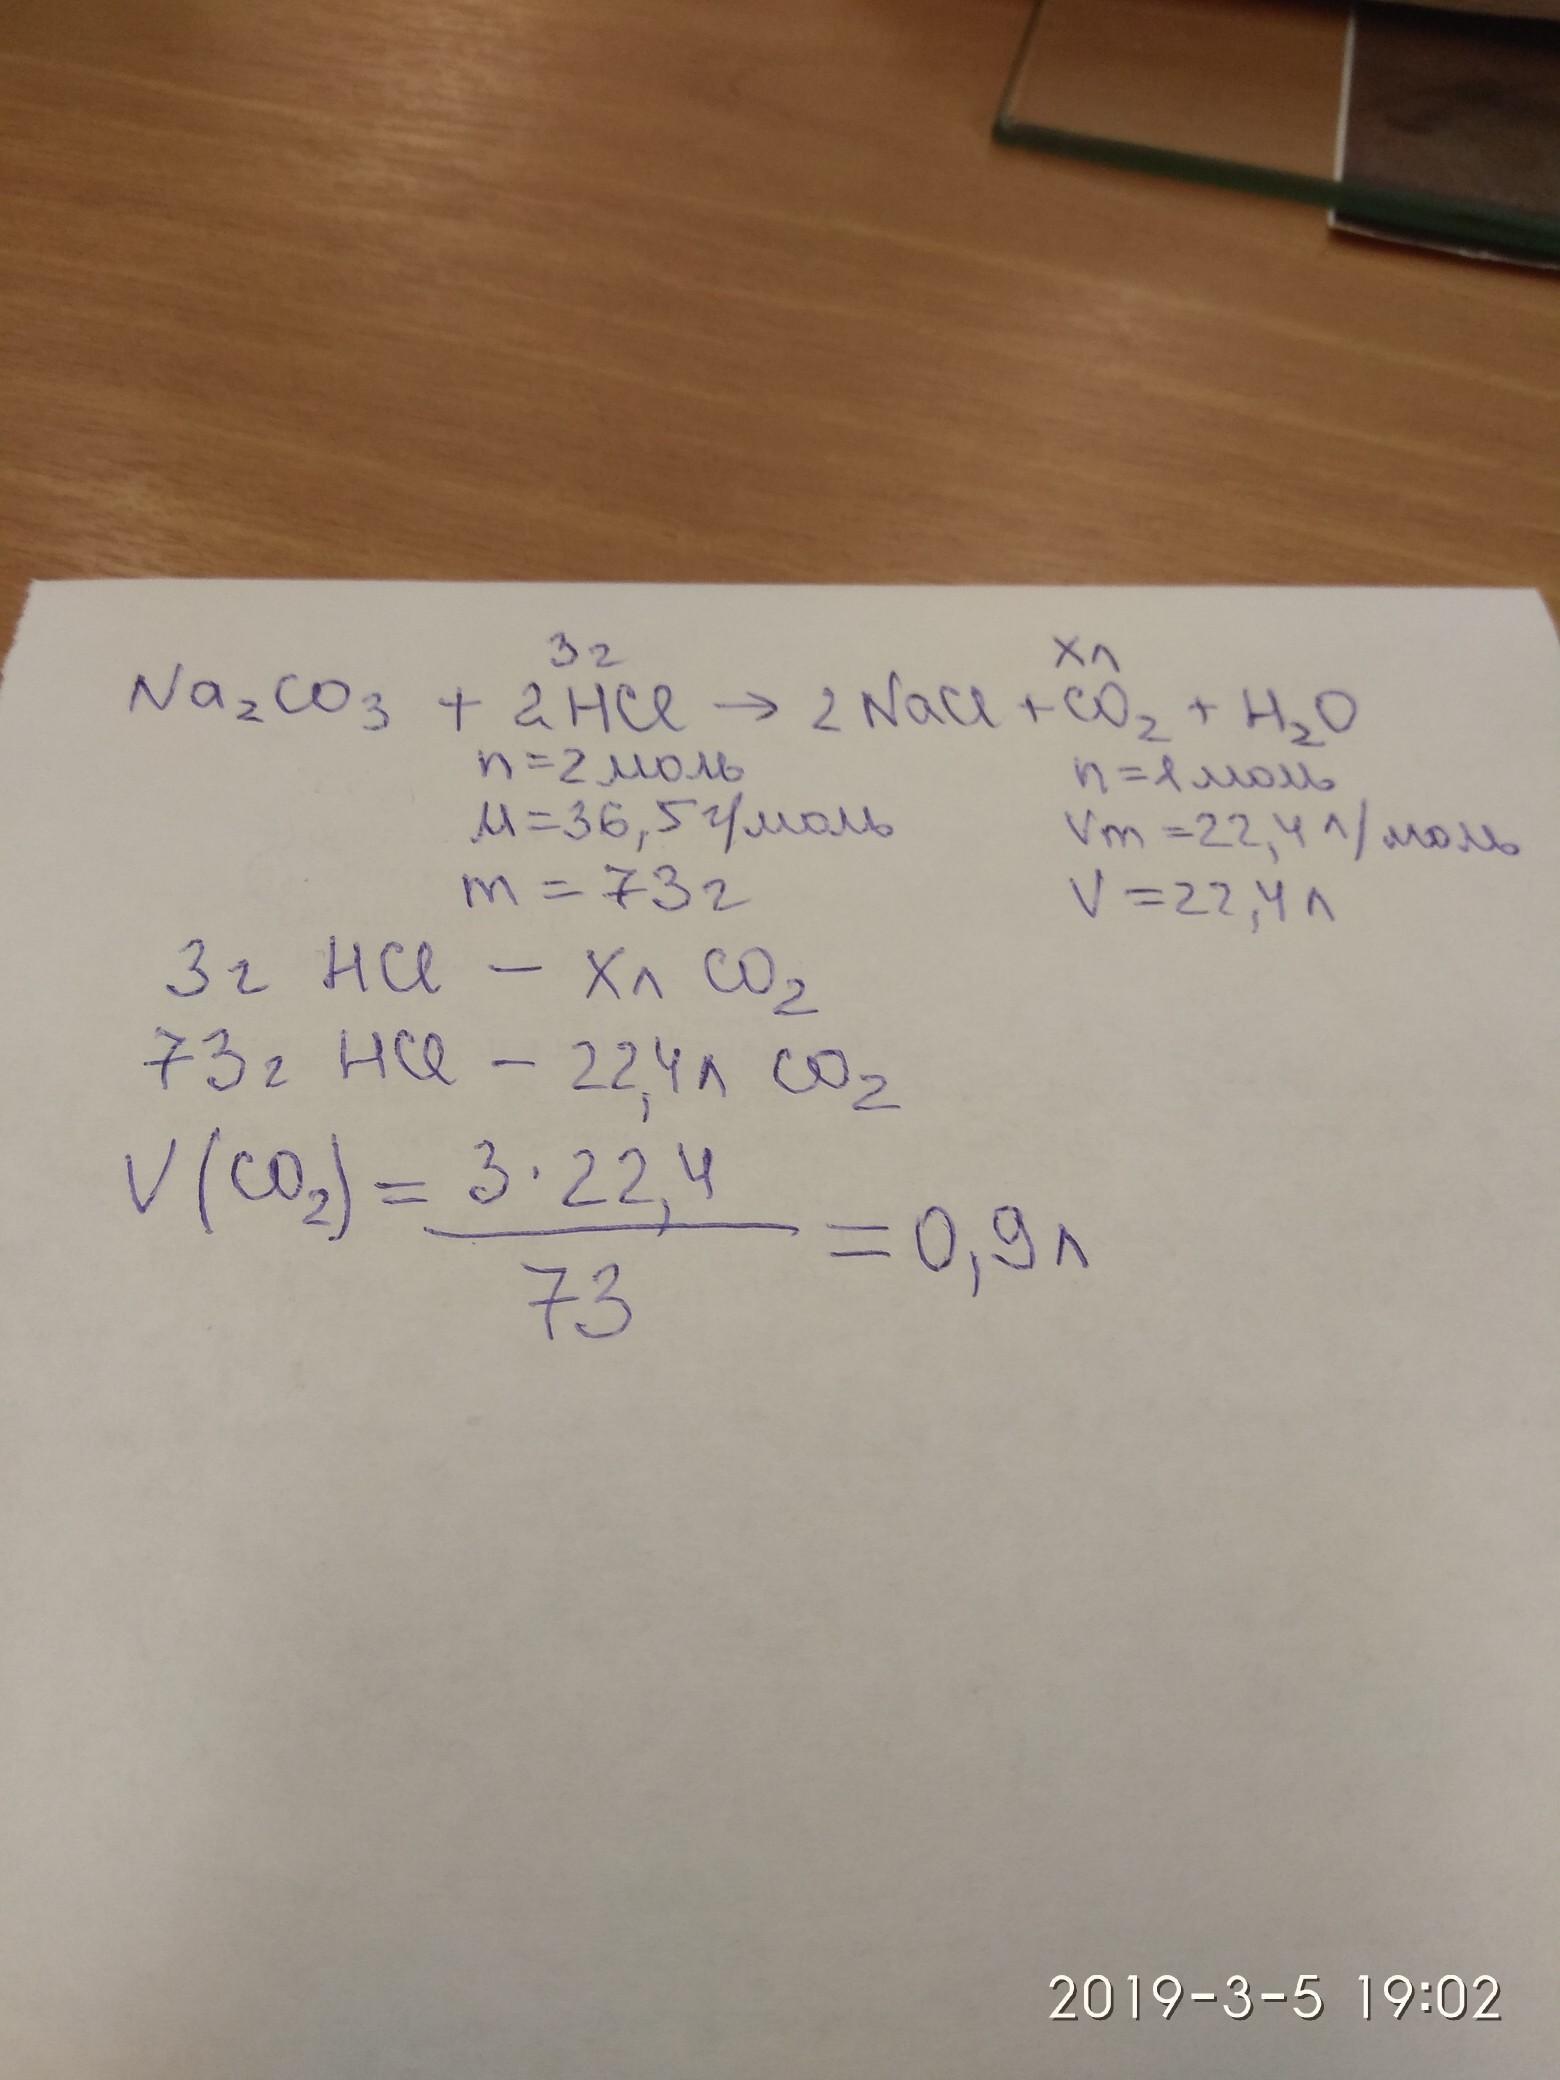 3г Xл
Na₂CO₃ + 2HCl → 2NaCl + CO₂ + H₂O
n=2моль n=1моль
M=36,5г/моль Vm=22,4л/моль
m=73г V=22,4л
3г HCl – Xл CO₂
73г HCl – 22,4л CO₂
V(CO₂) = 3·22,4 / 73 = 0,9л
2019-3-5 19:02